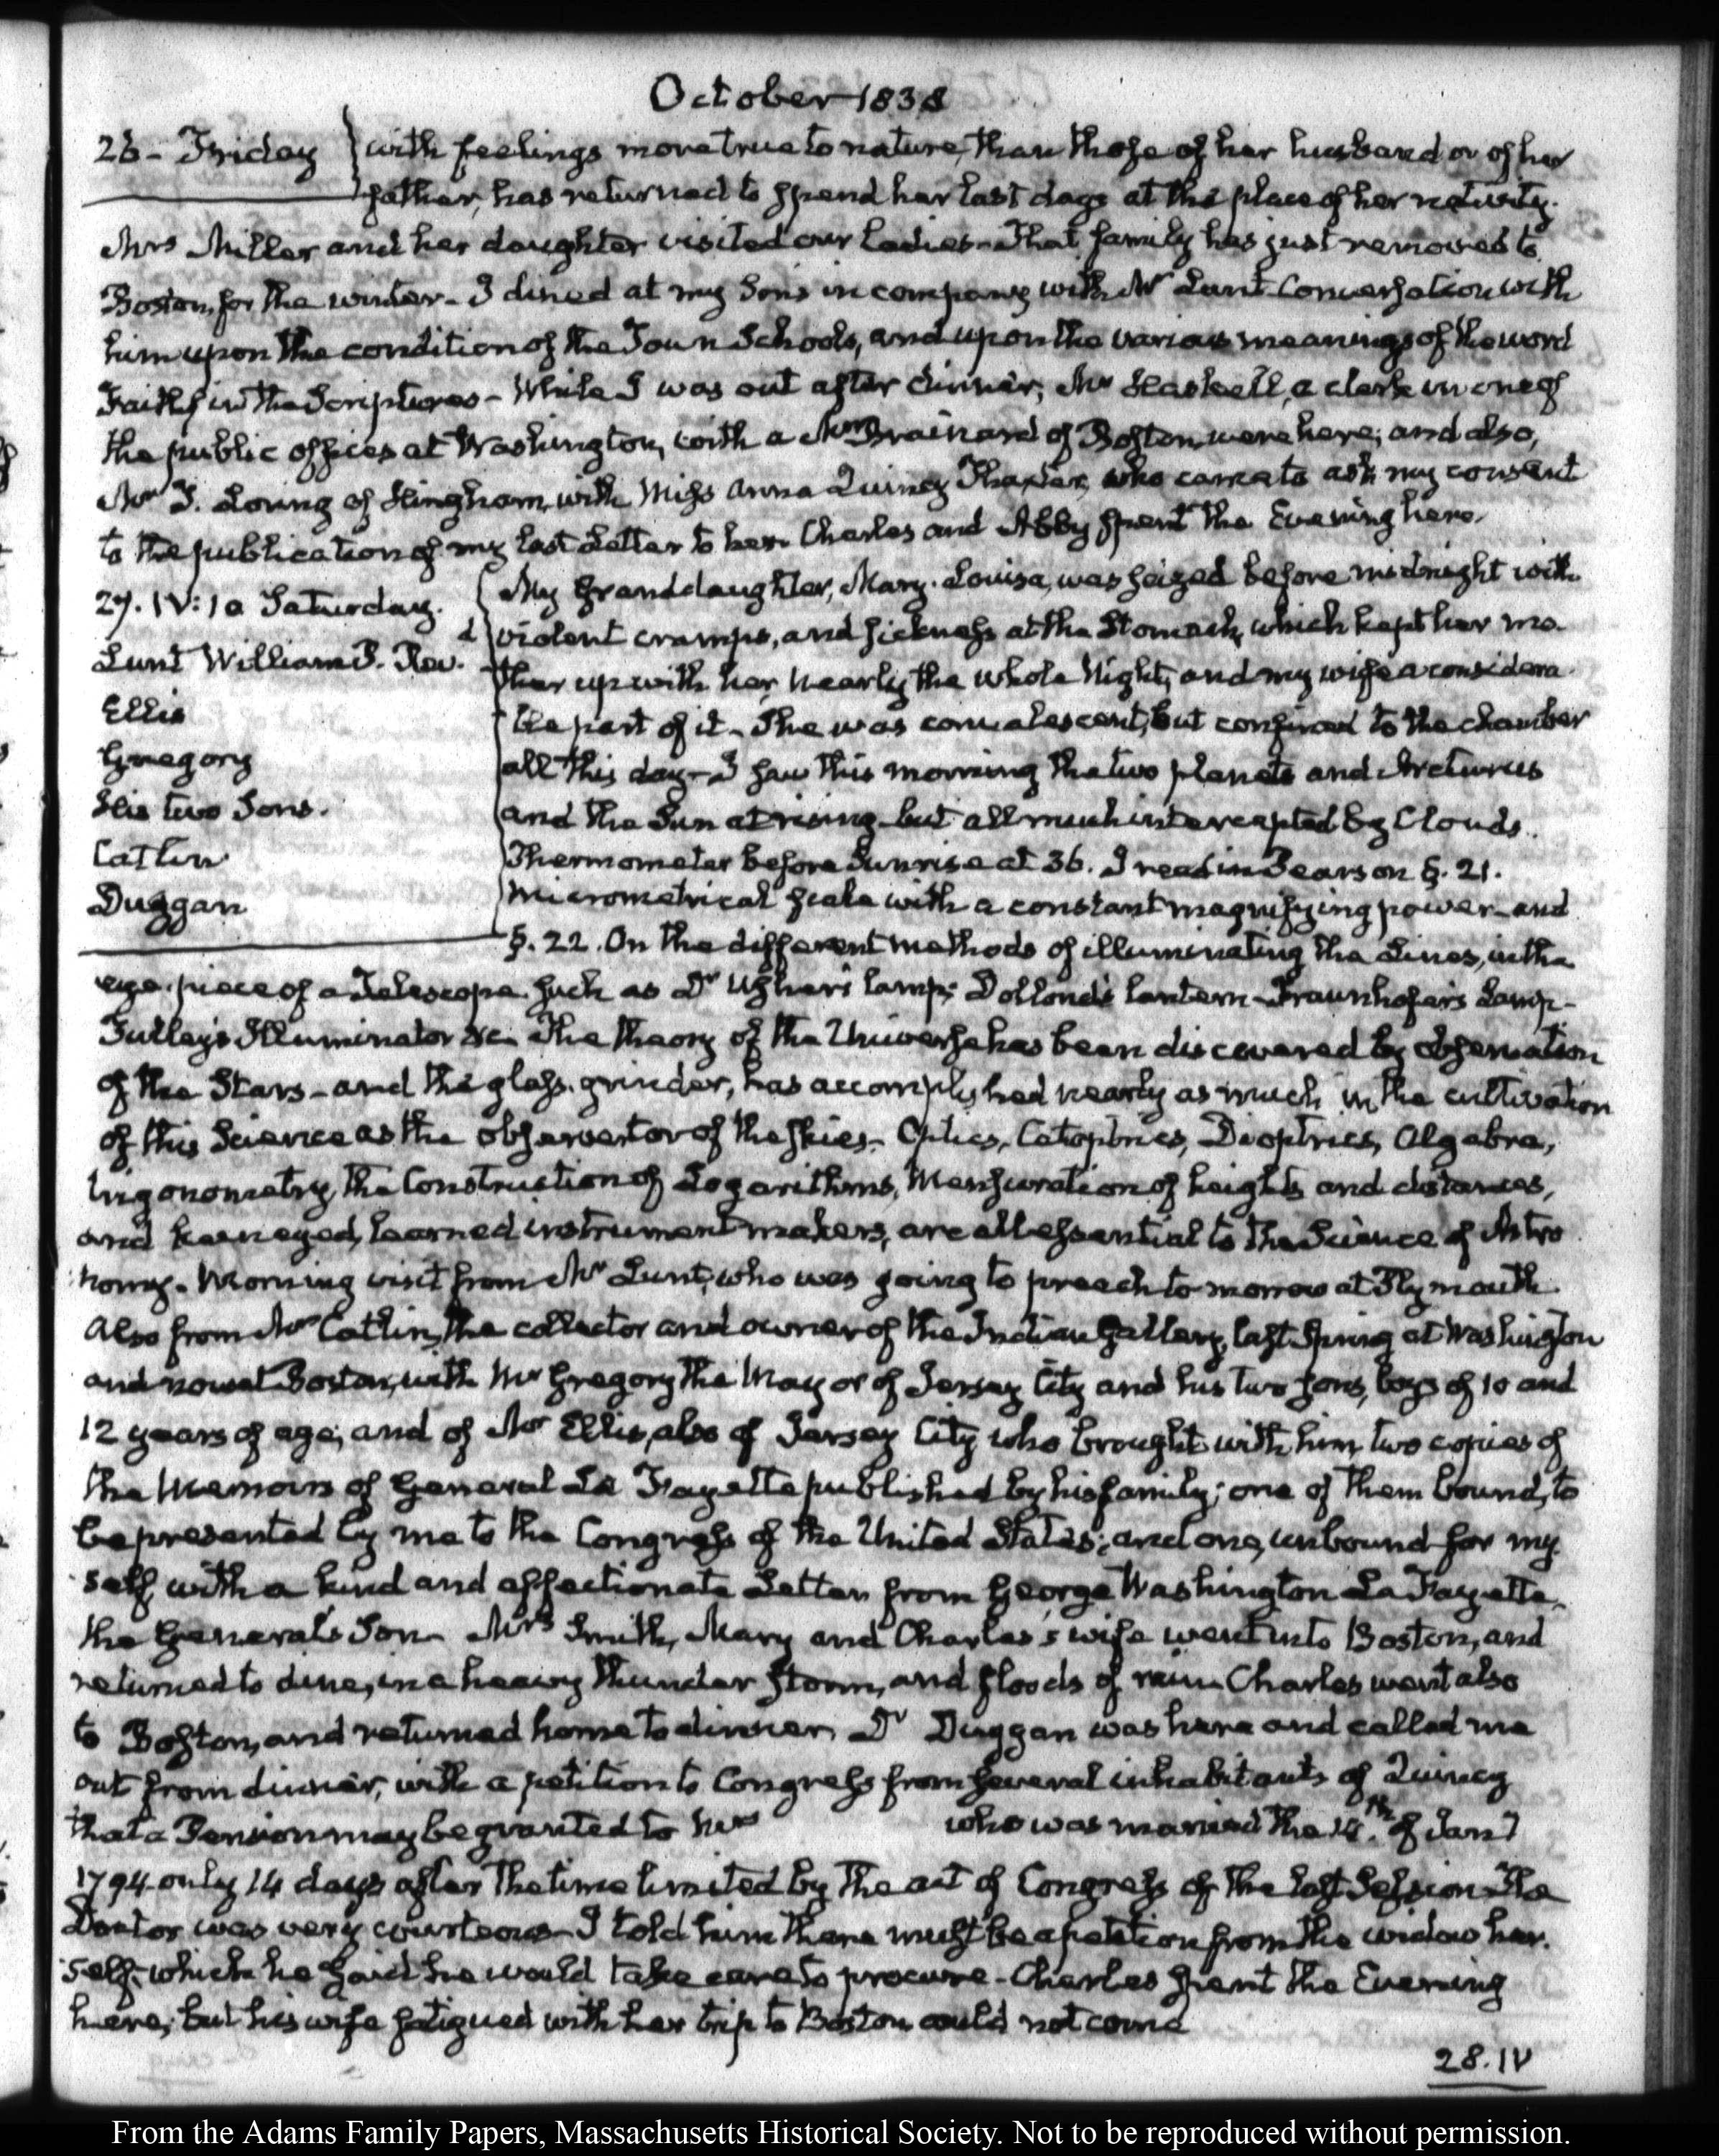 October 1838
26 - Friday
with feelings more true to nature, than those of her husband or of her
father, has returned to spend her last days at the place of her nativity.
Mrs Miller and her daughter visited our Ladies - That family has just removed to
Boston, for the winter - I dined at my Son's in company with Mr Lunt. Conversation with
him upon the condition of the Town Schools, and upon the various meanings of the word
Faith, in the Scriptures - While I was out after dinner, Mr Haskell, a clerk in one of
the public offices at Washington, with a Brainard of Boston, were here; and also,
Mr T. Loring of Hingham, with Miss Anna Quincy Thaxter, who came to ask my consent
to the publication of my last Letter to her. Charles and Abby spent the Evening here.
27. IV:10 Saturday.
Lunt William P. Rev.d
Ellis
Gregory
His two Sons.
Catlin
Duggan
My Granddaughter, Mary-Louisa, was seized before midnight with
violent cramps, and sickness at the Stomach, which kept her mo-
ther up with her nearly the whole Night, and my wife a considera-
ble part of it - She was convalescent, but confined to the chamber
all this day - I saw this morning the two planets and Arcturus
and the Sun at rising but all much intercepted by Clouds.
Thermometer before Sunrise at 36. I read in Pearson §. 21.
Micrometrical scale with a constant magnifying power - and
§. 22. On the different methods of illuminating the Lines, in the
eye-piece of a Telescope. Such as Dr Usher's lamp; Dollond's lantern - Fraunhofer's Lamp -
Tulley's Illuminator &c. The theory of the Universe has been discovered by observation
of the Stars - and the glass-grinder, has accomplished nearly as much in the cultivation
of this Science as the observator of the skies - Optics, Catoptrics, Dioptrics, Algebra,
trigonometry, the Construction of Logarithms, Mensuration of heights and distances,
and keen eyed, learned instrument makers, are all essential to the Science of Astro
nomy - Morning visit from Mr Lunt, who was going to preach to morrow at Plymouth
Also from Mr Catlin, the collector and owner of the Indian Gallery, last Spring at Washington
and now at Boston, with Mr Gregory the Mayor of Jersey City and his two sons, boys of 10 and
12 years of age; and of Mr Ellis, also of Jersey City who brought with him two copies of
the Memoirs of General La Fayette published by his family; one of them bound, to
be presented by me to the Congress of the United States; and one, unbound for my
self, with a kind and affectionate Letter from George Washington La Fayette,
the General's Son - Mrs Smith, Mary and Charles's wife went into Boston, and
returned to dine, in a heavy thunder storm, and floods of rain. Charles went also
to Boston, and returned home to dinner. Dr Duggan was here and called me
out from dinner, with a petition to Congress from several inhabitants of Quincy
that a Pension may be granted to Mrs who was married the 14.th of Jany
1794 only 14 days after the time limited by the act of Congress of the last Session The
Doctor was very courteous - I told him there must be a petition from the widow her-
self - which he said he would take care to procure - Charles spent the Evening
here; but his wife fatigued with her trip to Boston could not come
28. IV
From the Adams Family Papers, Massachusetts Historical Society. Not to be reproduced without permission.